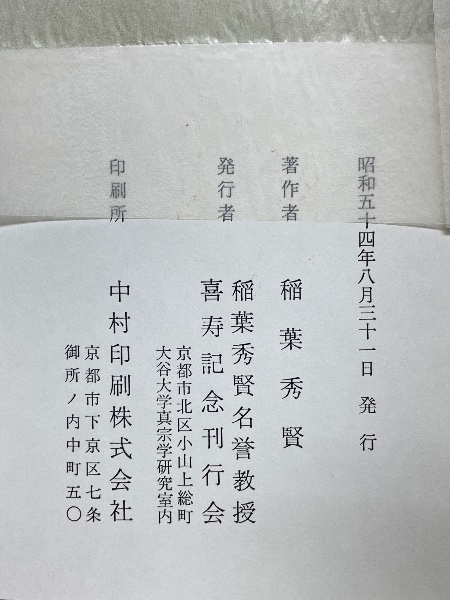 昭和五十四年八月三十一日 発行
著作者 稲葉秀賢
発行者 稲葉秀賢名誉教授
喜寿記念刊行会
京都市北区小山上総町
大谷大学真宗学研究室内
印刷所 中村印刷株式会社
京都市下京区七条
御所ノ内中町五〇